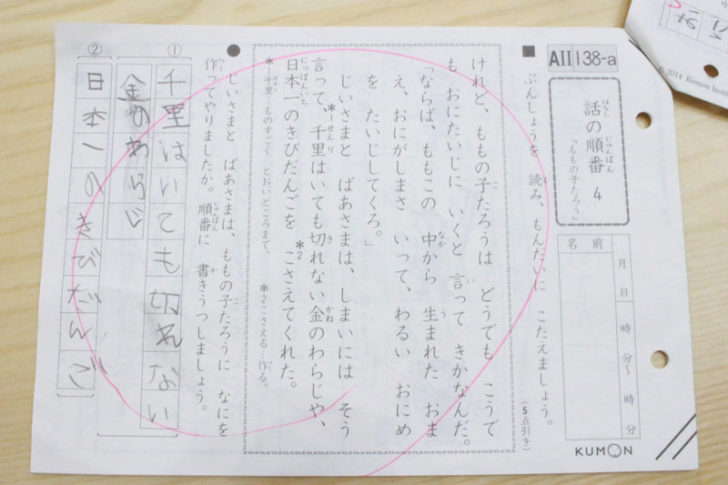 AII 138-a
話の順番 4
はなし じゅんばん
「ももの子たろう」
名前
月 日 時 分〜 時 分
KUMON
■ ぶんしょうを 読み、もんだいに こたえましょう。
(5点引き)
けれど、ももの子たろうは どうでも こうで
も おにたいじに いくと 言って きかなんだ。
「ならば、ももこの 中から 生まれた おま
え、おにがしまさ いって、わるい おにめ
を たいじしてくろ。」
じいさまと ばあさまは、しまいには そう
言って、千里はいても切れない金のわらじや、
日本一のきびだんごを こさえてくれた。
*1千里…ものすごく とおいところまで。 *2こさえる…作る。
● じいさまと ばあさまは、ももの子たろうに なにを
作ってやりましたか。順番に 書きうつしましょう。
①
千里はいても切れない
金のわらじ
②
日本一のきびだんご
© 2014 Kumon Insti